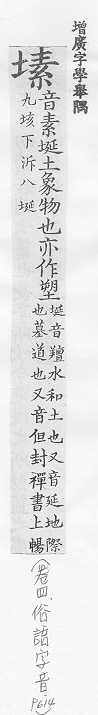 增廣字學舉隅
塐
音素埏土象物也亦作塑
埏音羶水和土也又音延地際
也墓道也又音但封禪書上暢
九垓下泝八埏
(卷四.俗語字音.P614)